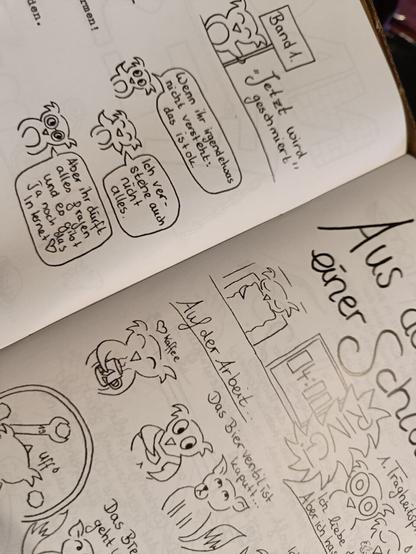 ormen!
den.
Band 1.
"Jetzt wird
geschmiert"
Wenn ihr irgendetwas
nicht versteht:
das ist ok.
Ich ver-
stehe auch
nicht
alles.
Aber ihr dürft
alles fragen
und es gibt
Ja noch das
Internet ♡
Aus d
einer Sch
Auf der Arbeit...
♡ kaffee
Das Bierventil ist
kaputt...
uffo
Das Bie
geht i
1. Trägheits
Ich liebe
Aber ich ha